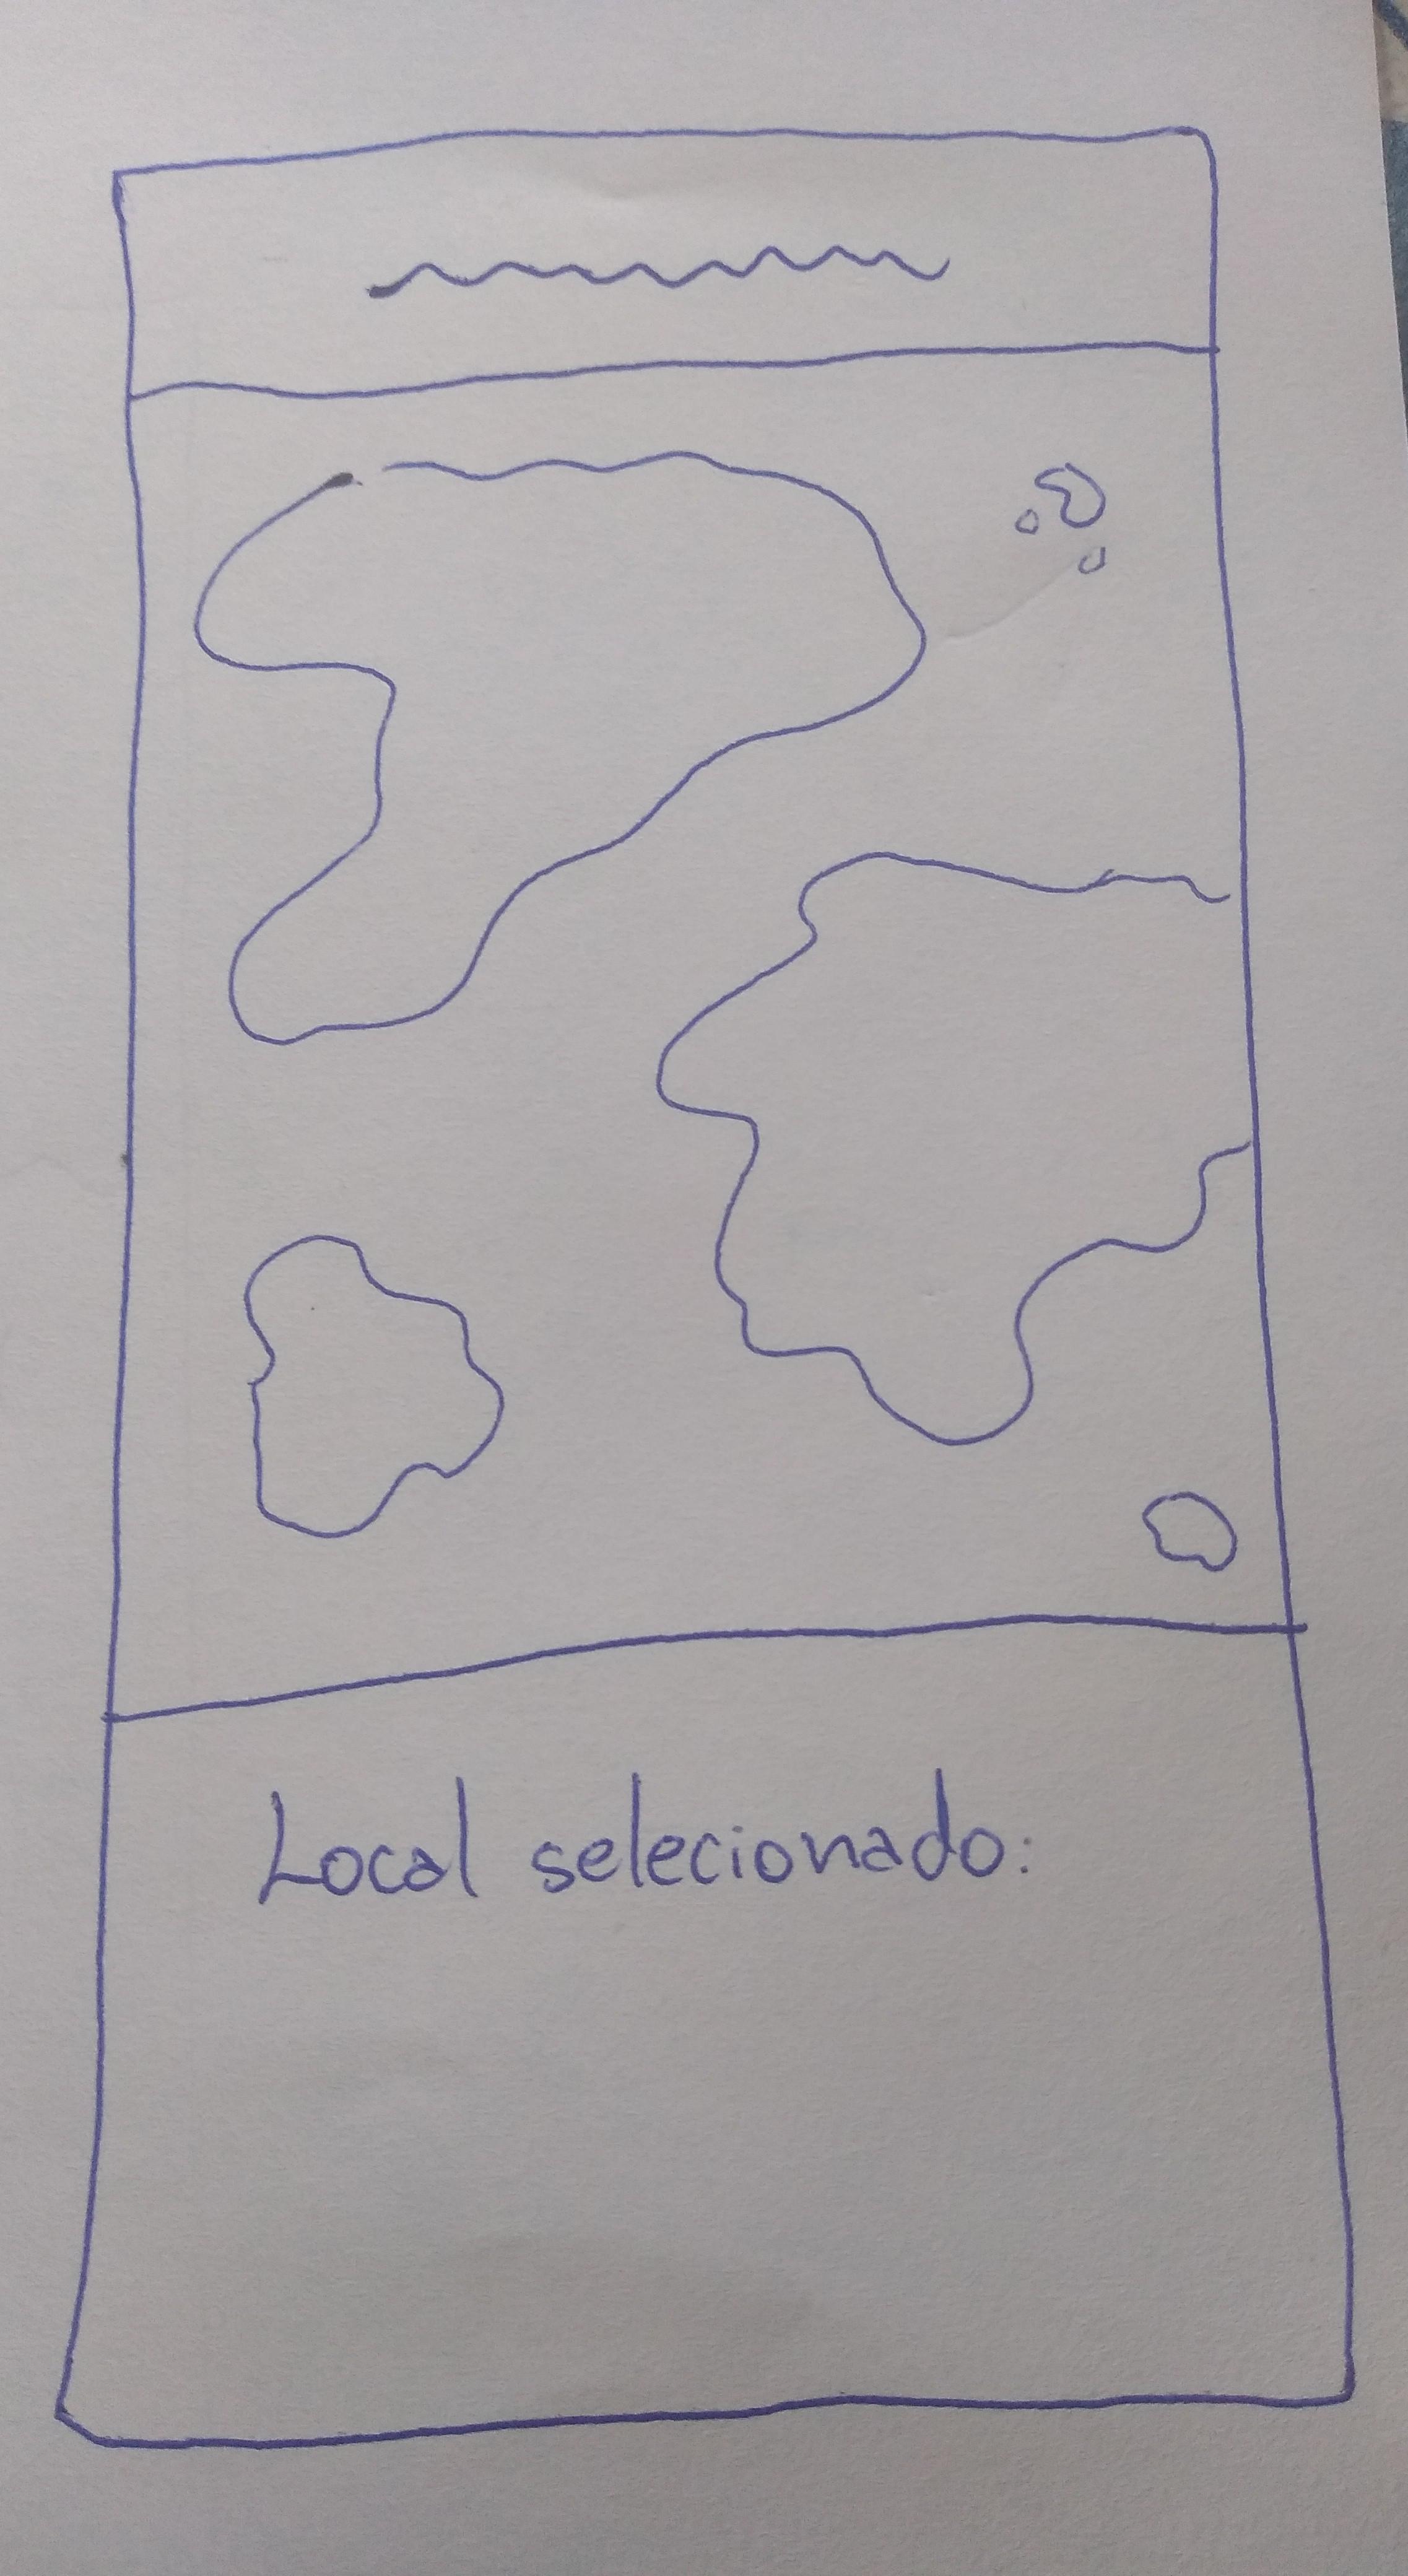 Local selecionado: